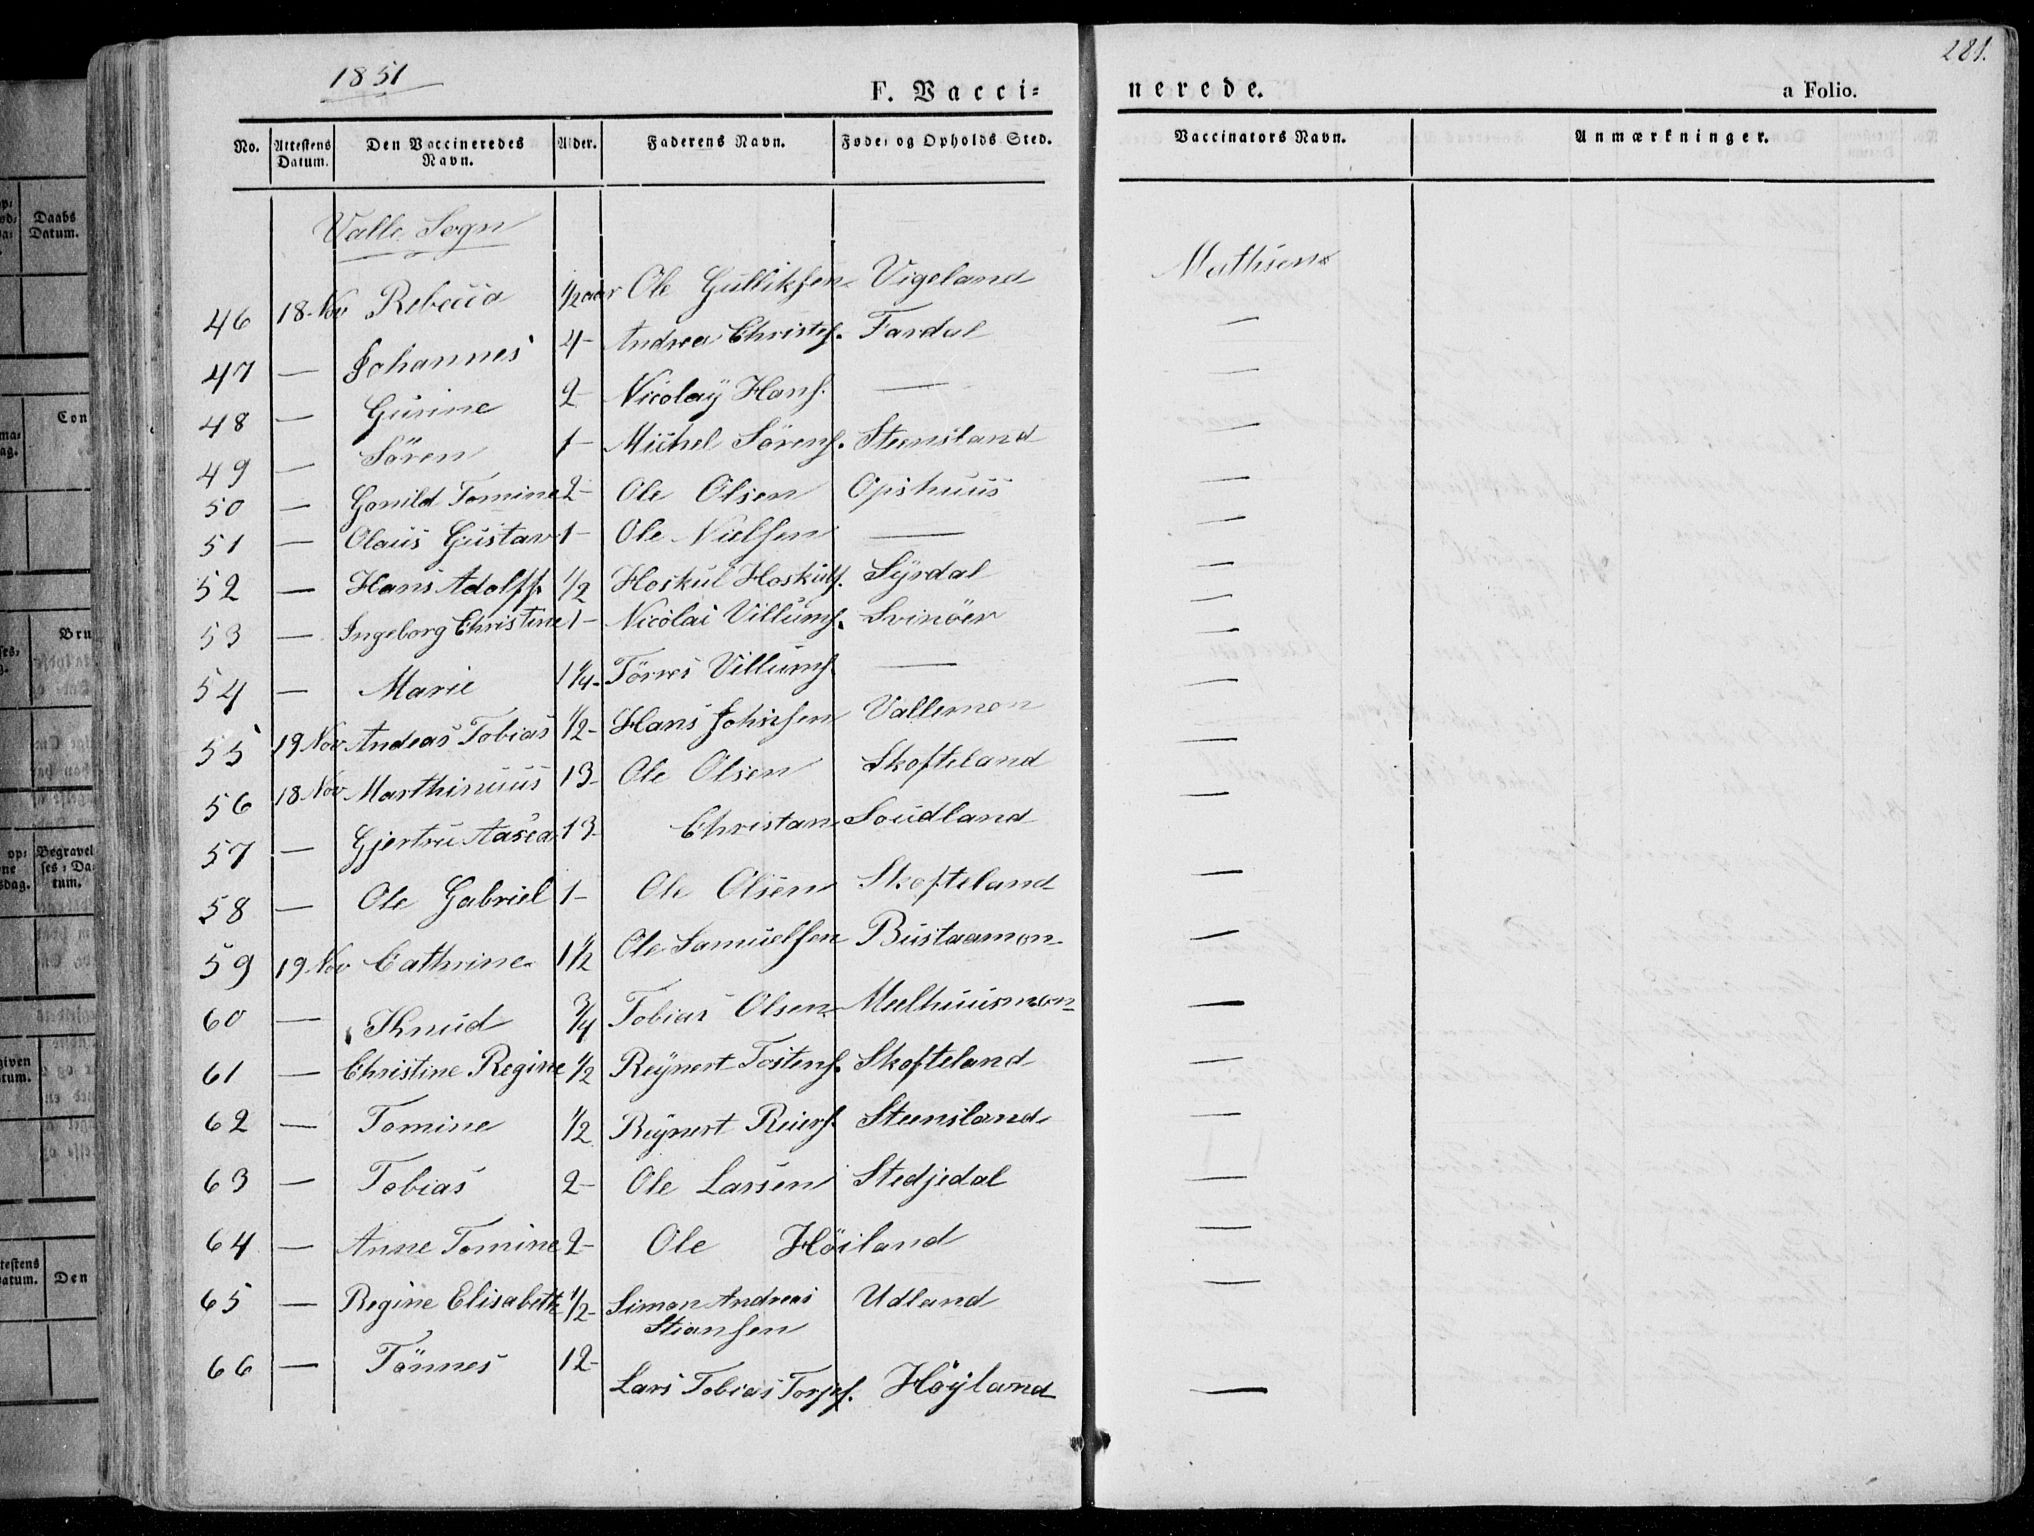 1851
281.
F. Vacci=
nerede.
a Folio.
No. | Attestens Datum. | Den Vaccineredes Navn. | Alder. | Faderens Navn. | Føde- og Opholds Sted. | Vaccinators Navn. | Anmærkninger.
Valle Sogn
46 18. Nov Rebecca 1/2 aar Ole Gulliksen Vigeland Mathsen
47 — Johannes 4 – Andreas Christef. Fardal —
48 — Gurine 2 – Nicolaÿ Hans. — —
49 — Sören 1 – Michel Sörens. Steensland —
50 — Gonild Tomine 2 – Ole Olsen Opshuus —
51 — Olaus Gustav 1 – Ole Nielsen — —
52 — Hans Adolff. 1/2 Hoskul Hoskuls. Sÿrdal —
53 — Ingeborg Christine 1 – Nicolai Villums. Svinöer —
54 — Marie 1 1/4 – Törres Villums. — —
55 19 Nov Andeas Tobias 1/2 – Hans Johnsen Vallemon —
56 18 Nov Marthinuus 13 – Ole Olsen Skofteland —
57 — Gjertru Aasea 13 – Christan Soudland —
58 — Ole Gabriel 1 – Ole Olsen Skofteland —
59 19. Nov Cathrine 1 1/2 Ole Samuelsen Bustaamon —
60 — Knud 3/4 Tobias Olsen Meelhuusmon —
61 — Christine Regine 1/2 Reÿnert Tostens. Skofteland —
62 — Tomine 1/2 Reÿnert Reiers. Steensland —
63 — Tobias 2 – Ole Larsen Stedjedal —
64 — Anne Tomine 2 – Ole Höiland —
65 — Regine Elisabeth 1/2 – Simon Andreas Udland —
Stiansen
66 — Tönnes 12 – Lars Tobias Torjes. Höÿland —
Daabs
Datum.
Con
Bru
Begravel
ses- Da-
tum.
given
tum.
testens
atum. | Den